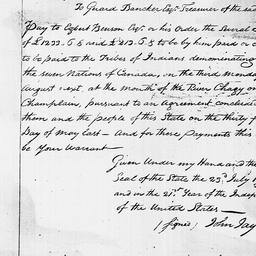 To Gerard Bancker Esqr. Treasurer of the sa
Pay to Egbert Benson Esqr. or his Order the several
of £1233..6.8 and £213.6.8 to be by him paid or c
to be paid to the Tribes of Indians denominating
the seven Nations of Canada, on the third Monday
August next, at the mouth of the River Chazy on
Champlain, pursuant to an Agreement concluded
them and the people of this State on the thirty f
Day of May last — And for these payments this
be your Warrant —
Given Under my Hand and the
Seal of the State the 23d. July 1
and in the 21st. Year of the Indep
of the United States —
(Signed) John Jay